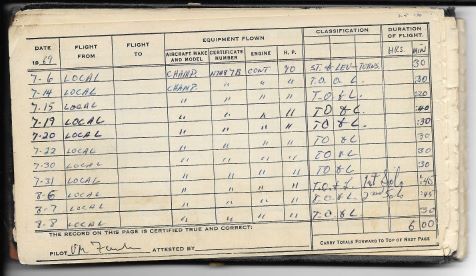 DATE FLIGHT FROM FLIGHT TO EQUIPMENT FLOWN CLASSIFICATION DURATION OF FLIGHT
19 69 AIRCRAFT MAKE AND MODEL CERTIFICATE NUMBER ENGINE H.P. HRS. MIN
7-6 LOCAL CHAMP. CONT 90 ST. & LEV - TURNS. :30
7-14 LOCAL CHAMP. " " " T.O. & L. :30
7-15 LOCAL " " " " T.O. & L. :20
7-19 LOCAL " " " " TO & L :40
7-20 LOCAL " " " " TO & L. :30
7-22 LOCAL " " " " TO & L :30
7-30 LOCAL " " " " TO & L :30
7-31 LOCAL " " " " TO & L :30
8-6 LOCAL " " " " T.O. & L. 1st Solo :45
8-7 LOCAL " " " " TO & L. 2nd Solo :45
8-8 LOCAL " " " " TO & L :30
THE RECORD ON THIS PAGE IS CERTIFIED TRUE AND CORRECT: 6 00
PILOT ATTESTED BY CARRY TOTALS FORWARD TO TOP OF NEXT PAGE